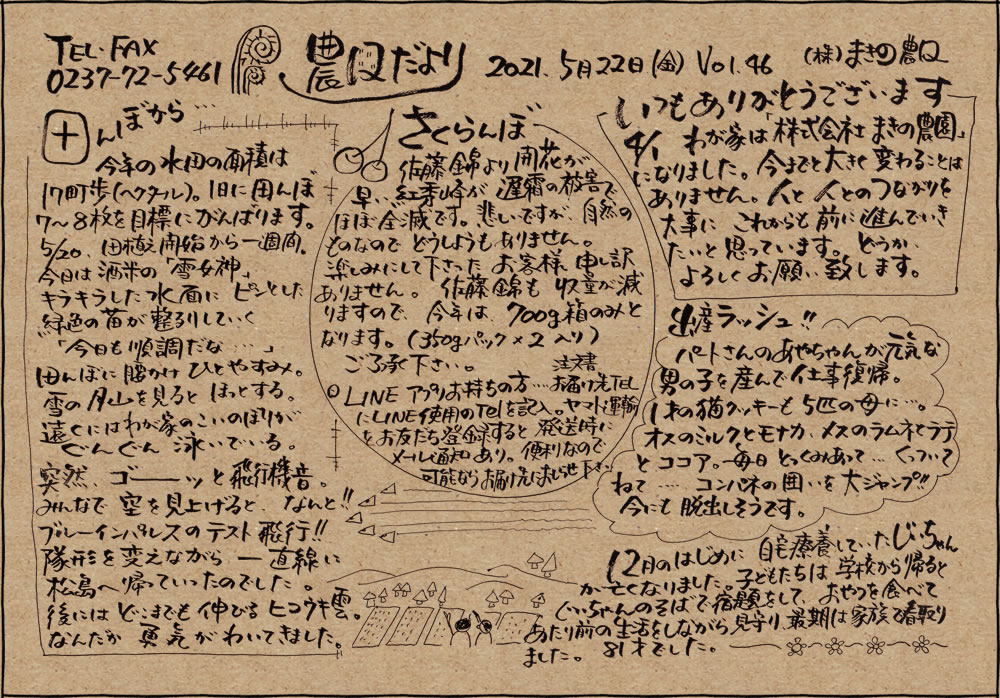 TEL・FAX
0237-72-5461
農園だより
2021. 5月22日(金) Vol.46
(株)まきの農園
田んぼから…
今年の水田の面積は
17町歩(ヘクタール)。1日に田んぼ
7〜8枚を目標にがんばります。
5/20、田植え開始から一週間。
今日は酒米の「雪女神」
キラキラした水面に ピンとした
緑色の苗が整列していく
「今日も順調だな……」
田んぼに腰かけ ひとやすみ。
雪の月山を見ると ほっとする。
遠くにはわが家のこいのぼりが
ぐんぐん 泳いでいる。
突然、ゴーーッと飛行機音。
みんなで 空を見上げると、なんと!!
ブルーインパルスのテスト飛行!!
隊形を変えながら 一直線に
松島へ帰っていったのでした。
後には どこまでも 伸びる ヒコウキ雲。
なんだか 勇気がわいてきました。
さくらんぼ
佐藤錦より 開花が
早い紅秀峰が 遅霜の被害で
ほぼ全滅です。悲しいですが、自然の
ものなので どうしようもありません。
楽しみにして下さった お客様、申し訳
ありません。 佐藤錦も 収量が減
りますので、今年は、700g箱のみと
なります。(350gパック×2入り)
ご了承下さい。
注文書
◎LINE アプリお持ちの方…お届け先TEL
にLINE使用のTelを記入。ヤマト運輸
をお友だち登録すると 発送時に
メール通知あり。便利なので
可能なら お届け先におしらせ下さい
いつもありがとうございます
4/1、わが家は「株式会社 まきの農園」
になりました。今までと大きく変わることは
ありません。人と人とのつながりを
大事に これからも前に進んでいき
たいと思っています。どうか、
よろしくお願い致します。
出産ラッシュ!!
パートさんのあやちゃんが元気な
男の子を産んで仕事復帰。
1才の猫クッキーも 5匹の母に…。
オスのミルクとモナカ、メスのラムネとラテ
とココア。毎日 とっくみあって… くっついて
ねて … コンパネの囲いを大ジャンプ!!
今にも脱出しそうです。
12月のはじめに 自宅療養していたじいちゃん
が亡くなりました。子どもたちは 学校から帰ると
じいちゃんのそばで宿題をして、おやつを食べて
あたり前の生活をしながら見守り、最期は家族で看取り
ました。 81才でした。